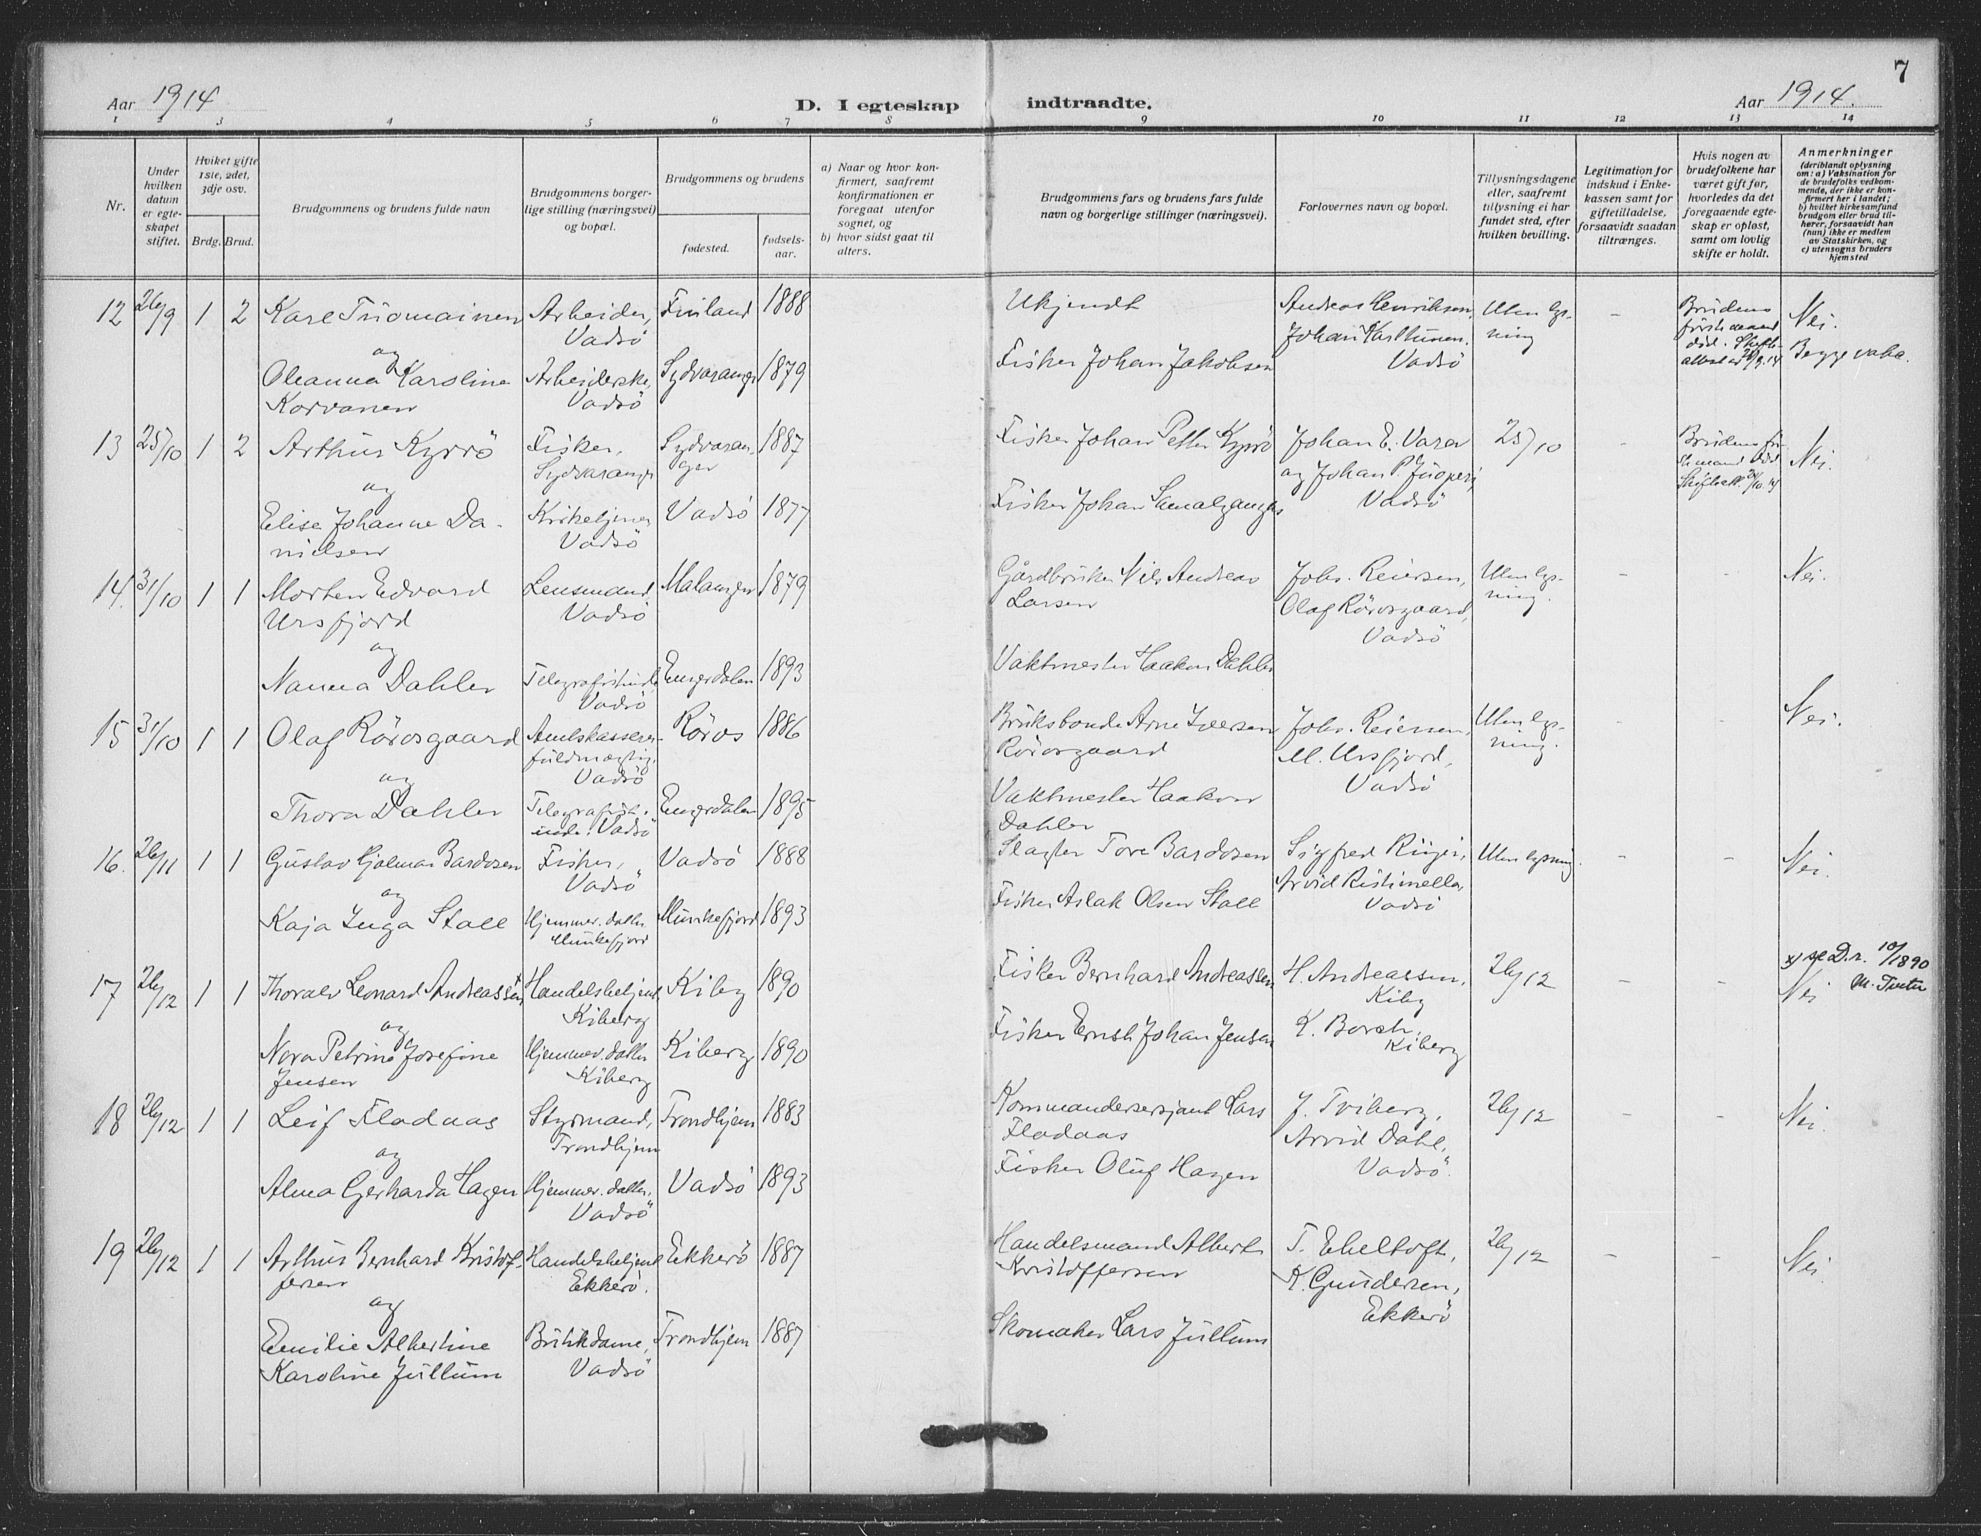 7
Aar 1914
D. I egteskap
indtraadte.
Aar 1914.
1 2 3 4 5 6 7 8 9 10 11 12 13 14
Nr.
Under hvilken datum er egteskapet stiftet.
Hviket gifte 1ste, 2det, 3dje osv.
Brdg. Brud.
Brudgommens og brudens fulde navn
Brudgommens borgerlige stilling (næringsvei) og bopæl.
Brudgommens og brudens
fødested.
fødselsaar.
a) Naar og hvor konfirmert, saafremt konfirmationen er foregaat utenfor sognet, og
b) hvor sidst gaat til alters.
Brudgommens fars og brudens fars fulde navn og borgerlige stillinger (næringsvei).
Forlovernes navn og bopæl.
Tillysningsdagene eller, saafremt tillysning ei har fundet sted, efter hvilken bevilling.
Legitimation for indskud i Enkekassen samt for giftetilladelse, forsaavidt saadan tiltrænges.
Hvis nogen av brudefolkene har været gift før, hvorledes da det foregaaende egteskap er opløst, samt om lovlig skifte er holdt.
Anmerkninger
(deriblandt oplysning om: a) Vaksination for de brudefolks vedkommende, der ikke er konfirmert her i landet;
b) hvilket kirkesamfund brudgom eller brud tilhører, forsaavidt han (hun) ikke er medlem av Statskirken, og
c) utensogns bruders hjemsted
12 26/9 1 2 Karl Tuomainen Arbeider, Vadsö Finland 1888
og
Oleanna Karoline Korvanen Arbeiderske, Vadsö Sydvaranger 1879
Ukjendt
Fisker Johan Jakobsen
Andreas Henriksen, Johan Karthunen. Vadsö
Uten lysning
-
Brudens förste mand död. Skifteattest 26/9.14
Nei.
Begge vaks.
13 25/10 1 2 Arthur Kyrrö Fisker, Sydvaranger Sydvaranger 1887
og
Elise Johanne Danielsen Kirketjener Vadsö Vadsö 1877
Fisker Johan Petter Kyrrö
Fisker Johan
Johan E. Varer og Johan P. Vadsö
25/10
-
Nei.
14. 31/10 1 1 Morten Edvard Ursfjord Lensmand, Vadsö Malangen 1879
og
Nanna Dahler Telegrafistinde, Vadsö Engerdalen 1893
Gårdbruker Nils Andreas Larsen
Vaktmester Haakon Dahler
Johs. Reiersen, Olaf Rörosgaard, Vadsö
Uten lysning.
- -
Nei.
15 31/10 1 1 Olaf Rörosgaard Amtskasserer-fuldmægtig, Vadsö Röros 1886
og
Thora Dahler Telegrafistinde. Vadsö Engerdalen 1895
Bruksbonde Arne Iversen Rörosgaard
Vaktmester Haakon Dahler
Johs. Reiersen, M. Ursfjord, Vadsö
Uten lysning.
- -
Nei.
16. 26/11 1 1 Gustav Hjalmar Bardosen Fisker, Vadsö Vadsö 1888
og
Kaja Inga Stall Hjemmev. datter Munkefjord Munkefjord 1893
Slagter Tore Bardosen
Fisker Aslak Olsen Stall
Sigfred Arvid Ristimella, Vadsö
Uten lysning.
- -
Nei.
17 26/12 1 1 Thoralv Leonard Andreassen Handelsbetjent, Kiberg Kiby 1890
og
Nora Petrine Josefine Jensen Hjemmev. datter Kiberg Kiberg 1890
Fisker Bernhard Andreassen
Fisker Ernst Johan Jensen
H. Andreassen, Kiby
K. Borch, Kiberg
26/12
- -
x) se D.r. 10/1890
Nei M.
18 26/12 1 1 Leif Fladaas Styrmand, Trondhjem Trondhjem 1883
og
Alma Gerharda Hagen Hjemmev. datter, Vadsö Vadsö 1893
Kommandersersjant Lars Fladaas
Fisker Oluf Hagen
J. Tviberg, Arvid Dahl, Vadsö.
26/12
- -
Nei.
19 26/12 1 1 Arthur Bernhard Kristoffersen Handelsbetjent Ekkerö. Ekkerö 1887
og
Emilie Albertine Karoline Jullum Butikdame, Vadsö Trondhjem 1887
Handelsmand Albert Kristoffersen
Skomaker Lars Jullum
T. Eheltoft, K. Gundersen, Ekkerö
26/12
- -
Nei.